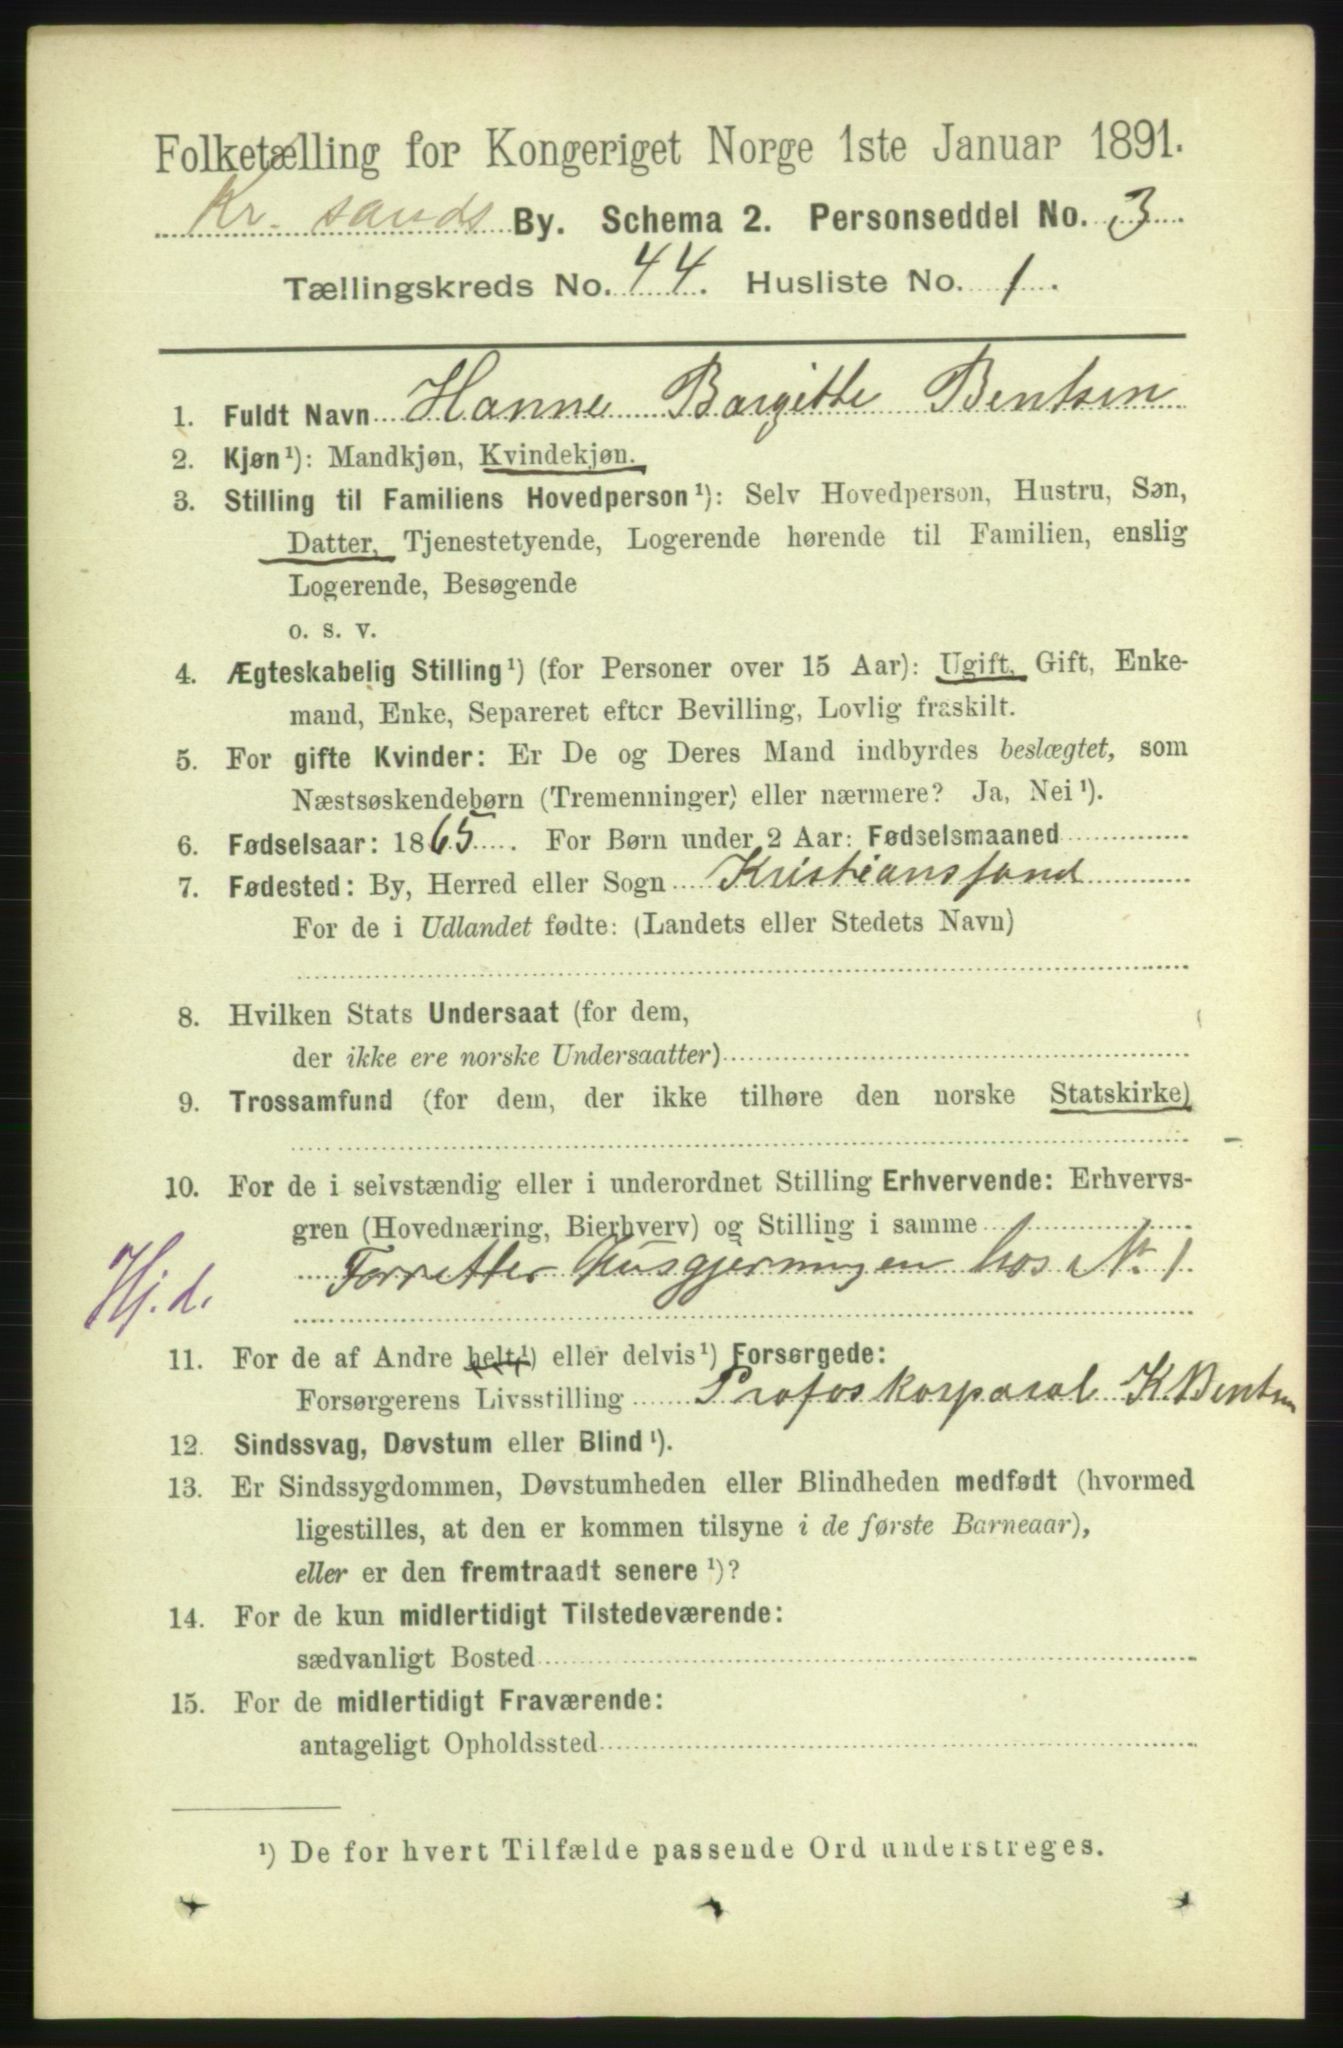 Folketælling for Kongeriget Norge 1ste Januar 1891.
Kr. sands By. Schema 2. Personseddel No. 3
Tællingskreds No. 44. Husliste No. 1.
1. Fuldt Navn Hanne Bargitte Bentsen
2. Kjøn¹): Mandkjøn, Kvindekjøn.
3. Stilling til Familiens Hovedperson¹): Selv Hovedperson, Hustru, Søn,
Datter, Tjenestetyende, Logerende hørende til Familien, enslig
Logerende, Besøgende
o. s. v.
4. Ægteskabelig Stilling¹) (for Personer over 15 Aar): Ugift, Gift, Enke-
mand, Enke, Separeret efter Bevilling, Lovlig fraskilt.
5. For gifte Kvinder: Er De og Deres Mand indbyrdes beslægtet, som
Næstsøskendebørn (Tremenninger) eller nærmere? Ja, Nei¹).
6. Fødselsaar: 1865. For Børn under 2 Aar: Fødselsmaaned
7. Fødested: By, Herred eller Sogn Kristianssand
For de i Udlandet fødte: (Landets eller Stedets Navn)
8. Hvilken Stats Undersaat (for dem,
der ikke ere norske Undersaatter)
9. Trossamfund (for dem, der ikke tilhøre den norske Statskirke)
10. For de i selvstændig eller i underordnet Stilling Erhvervende: Erhvervs-
gren (Hovednæring, Bierhverv) og Stilling i samme
Forretter Husgjerningen hos No 1.
Hj. d.
11. For de af Andre helt¹) eller delvis¹) Forsørgede:
Forsørgerens Livsstilling Profoskorporal K Bentsen
12. Sindssvag, Døvstum eller Blind¹).
13. Er Sindssygdommen, Døvstumheden eller Blindheden medfødt (hvormed
ligestilles, at den er kommen tilsyne i de første Barneaar),
eller er den fremtraadt senere¹)?
14. For de kun midlertidigt Tilstedeværende:
sædvanligt Bosted
15. For de midlertidigt Fraværende:
antageligt Opholdssted
¹) De for hvert Tilfælde passende Ord understreges.